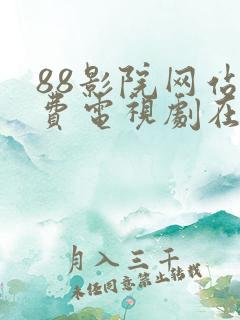 88影院网估
費電視劇在
月入三千
未经同意禁止转载